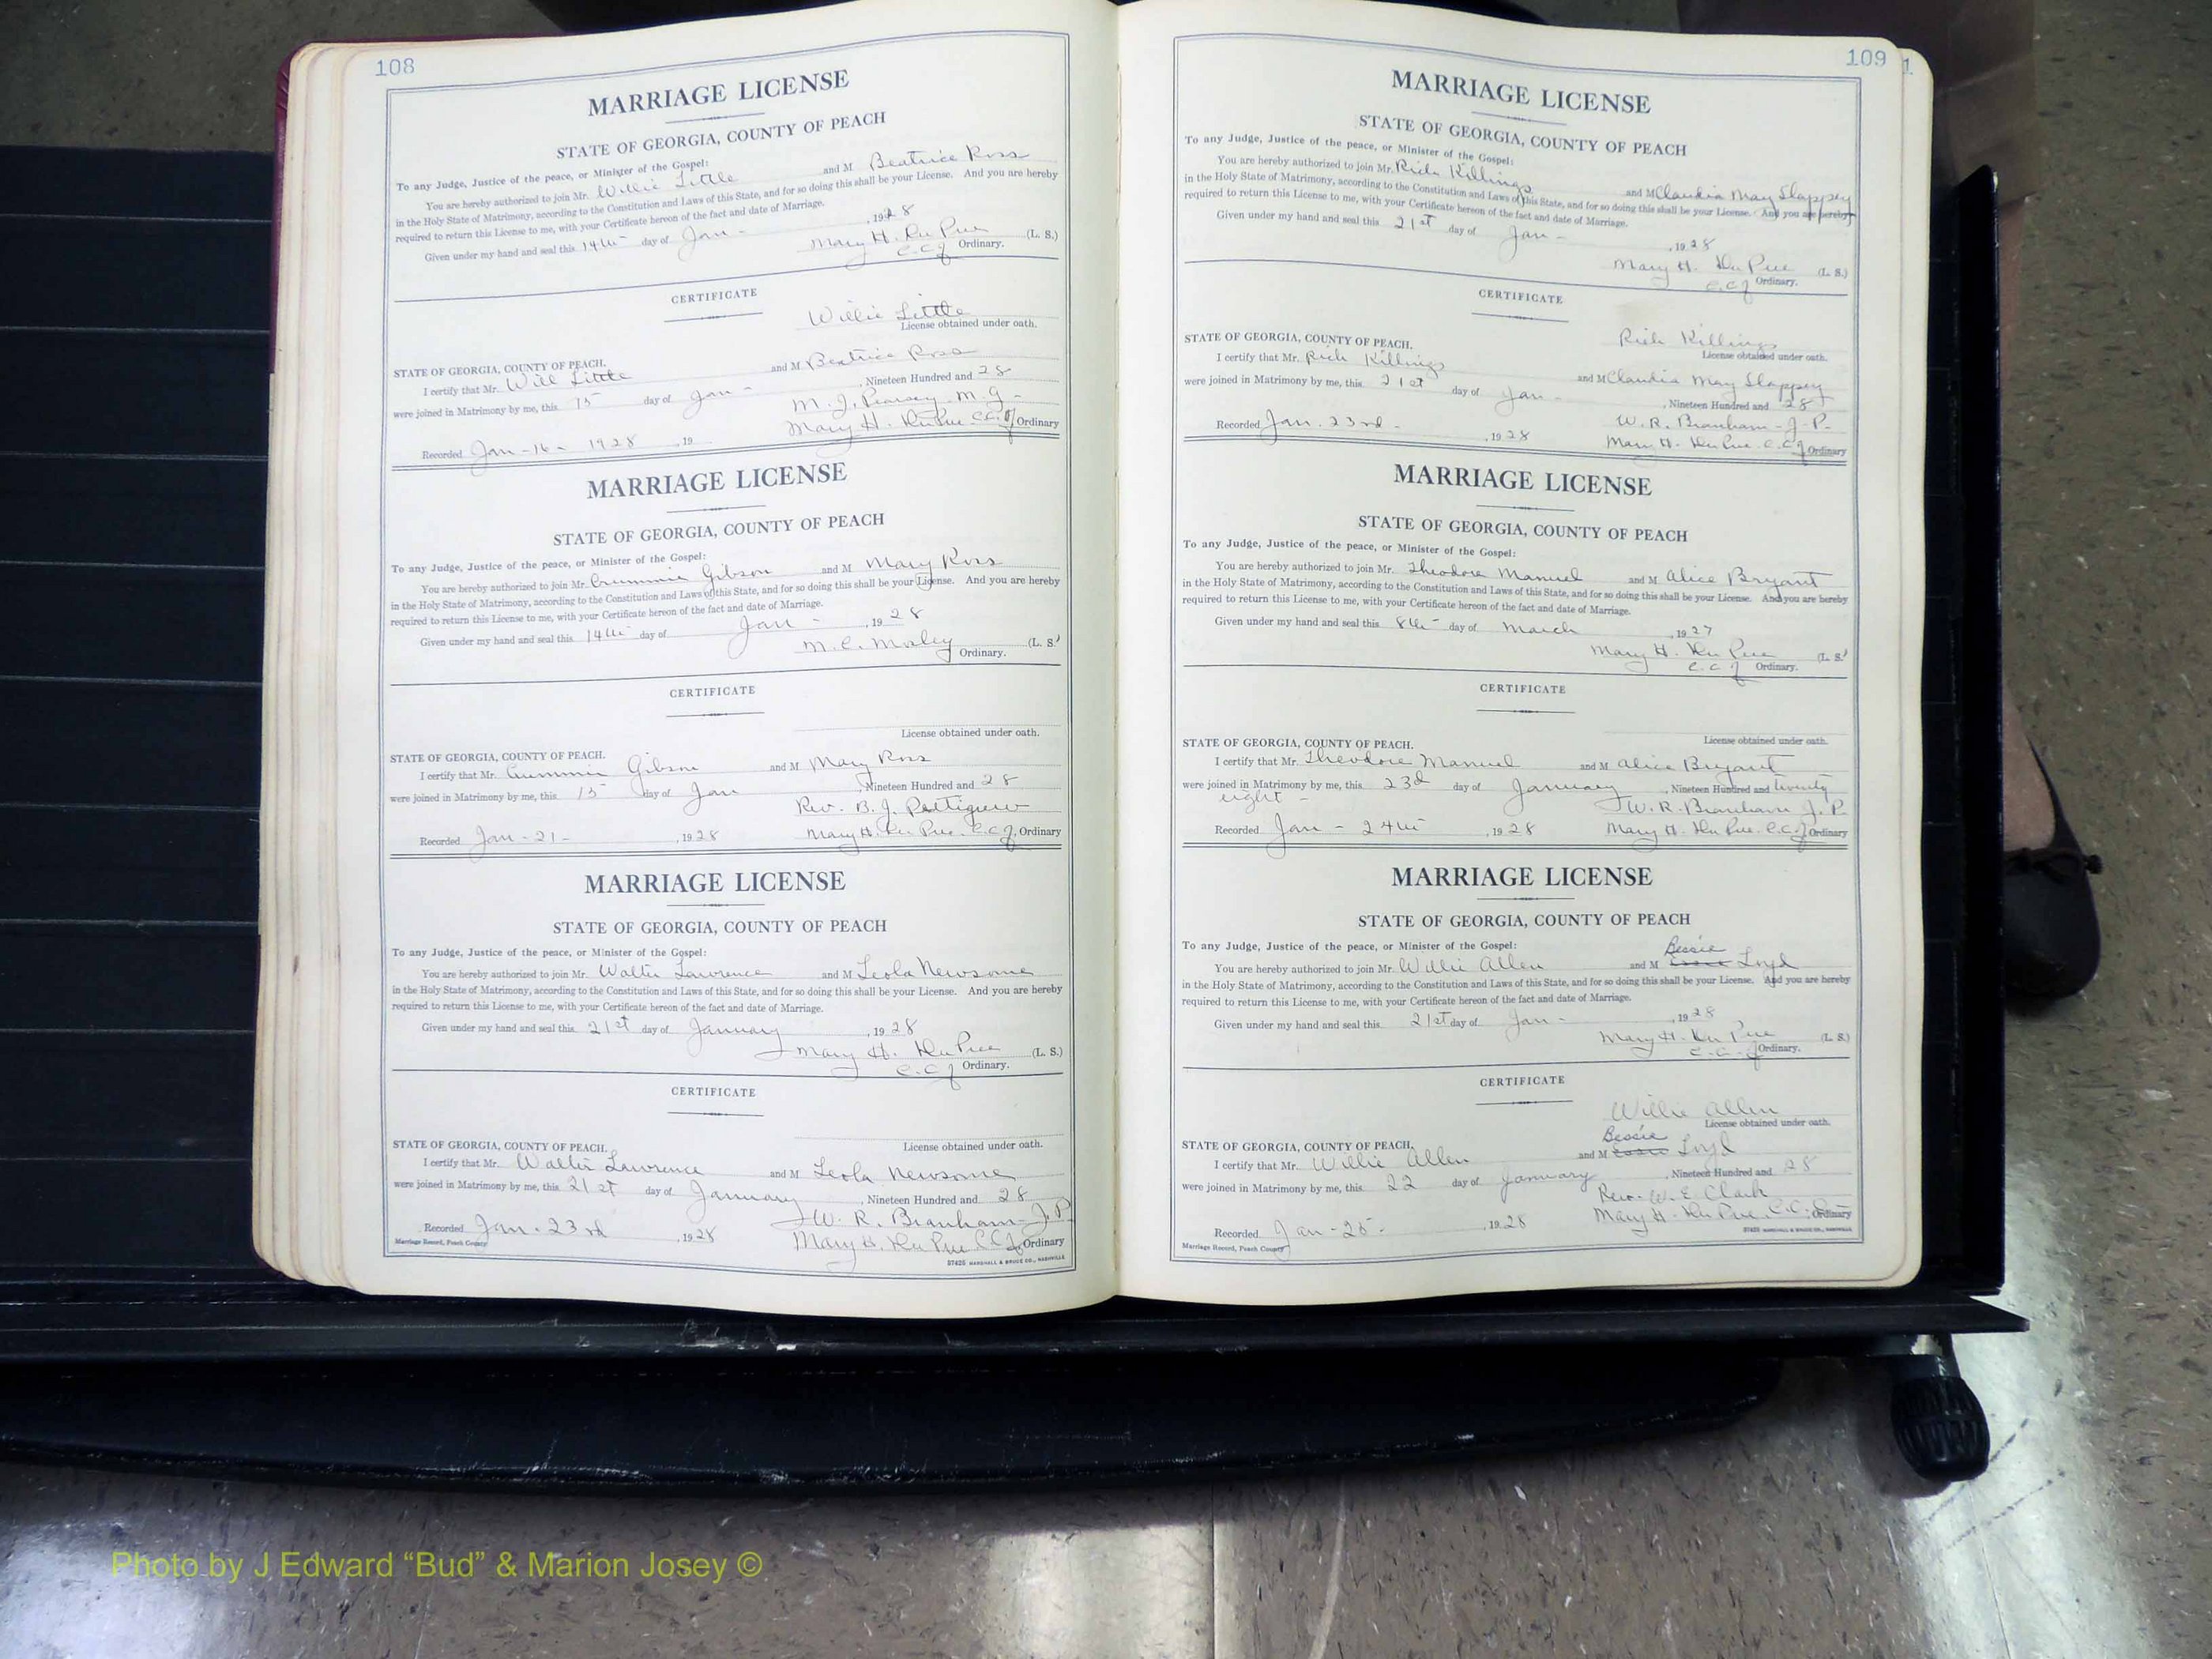 108
MARRIAGE LICENSE
STATE OF GEORGIA, COUNTY OF PEACH
To any Judge, Justice of the peace, or Minister of the Gospel:
You are hereby authorized to join Mr. Willie Little and M Beatrice Ross
in the Holy State of Matrimony, according to the Constitution and Laws of this State, and for so doing this shall be your License. And you are hereby
required to return this License to me, with your Certificate hereon of the fact and date of Marriage.
Given under my hand and seal this 14th day of Jan - , 1928
Mary H. Du Pree (L. S.)
C.C.J Ordinary.
CERTIFICATE
Willie Little
License obtained under oath.
STATE OF GEORGIA, COUNTY OF PEACH.
I certify that Mr. Will Little and M. Beatrice Ross
were joined in Matrimony by me, this 15 day of Jan - , Nineteen Hundred and 28
M. J. Pearsey M. G -
Recorded Jan - 16 - 1928 , 19 Mary H. Du Pree C.C.J Ordinary
MARRIAGE LICENSE
STATE OF GEORGIA, COUNTY OF PEACH
To any Judge, Justice of the peace, or Minister of the Gospel:
You are hereby authorized to join Mr. Crummie Gibson and M Mary Ross
in the Holy State of Matrimony, according to the Constitution and Laws of this State, and for so doing this shall be your License. And you are hereby
required to return this License to me, with your Certificate hereon of the fact and date of Marriage.
Given under my hand and seal this 14th day of Jan - , 19 28
M. C. Mosley (L. S.)
Ordinary.
CERTIFICATE
License obtained under oath.
STATE OF GEORGIA, COUNTY OF PEACH.
I certify that Mr. Crummie Gibson and M Mary Ross
were joined in Matrimony by me, this 15 day of Jan , Nineteen Hundred and 28
Rev. B. J. Pettigrew
Recorded Jan - 21 - , 19 28 Mary H. Du Pree. C.C.J. Ordinary
MARRIAGE LICENSE
STATE OF GEORGIA, COUNTY OF PEACH
To any Judge, Justice of the peace, or Minister of the Gospel:
You are hereby authorized to join Mr. Walter Lawrence and M Leola Newsome
in the Holy State of Matrimony, according to the Constitution and Laws of this State, and for so doing this shall be your License. And you are hereby
required to return this License to me, with your Certificate hereon of the fact and date of Marriage.
Given under my hand and seal this 21st day of January , 19 28
Mary H. Du Pree (L. S.)
C.C.J Ordinary.
CERTIFICATE
License obtained under oath.
STATE OF GEORGIA, COUNTY OF PEACH.
I certify that Mr. Walter Lawrence and M Leola Newsome
were joined in Matrimony by me, this 21st day of January , Nineteen Hundred and 28
W. R. Branham - J. P.
Recorded Jan. 23rd , 19 28 Mary H. Du Pree C.C.J Ordinary
Marriage Record, Peach County
57425 MARSHALL & BRUCE CO., NASHVILLE
109
MARRIAGE LICENSE
STATE OF GEORGIA, COUNTY OF PEACH
To any Judge, Justice of the peace, or Minister of the Gospel:
You are hereby authorized to join Mr. Rich Killings and M Claudia May Slappey
in the Holy State of Matrimony, according to the Constitution and Laws of this State, and for so doing this shall be your License. And you are hereby
required to return this License to me, with your Certificate hereon of the fact and date of Marriage.
Given under my hand and seal this 21st day of Jan - , 19 28
Mary H. Du Pree (L. S.)
C.C.J Ordinary.
CERTIFICATE
Rich Killings
License obtained under oath.
STATE OF GEORGIA, COUNTY OF PEACH.
I certify that Mr. Rich Killings and M Claudia May Slappey
were joined in Matrimony by me, this 21st day of Jan - , Nineteen Hundred and 28
W. R. Branham - J - P -
Recorded Jan. 23rd - , 19 28 Mary H. Du Pree. C.C.J Ordinary
MARRIAGE LICENSE
STATE OF GEORGIA, COUNTY OF PEACH
To any Judge, Justice of the peace, or Minister of the Gospel:
You are hereby authorized to join Mr. Theodore Manuel and M Alice Bryant
in the Holy State of Matrimony, according to the Constitution and Laws of this State, and for so doing this shall be your License. And you are hereby
required to return this License to me, with your Certificate hereon of the fact and date of Marriage.
Given under my hand and seal this 8th - day of March , 19 27
Mary H. Du Pree (L. S.)
C.C.J Ordinary.
CERTIFICATE
License obtained under oath.
STATE OF GEORGIA, COUNTY OF PEACH.
I certify that Mr. Theodore Manuel and M Alice Bryant
were joined in Matrimony by me, this 23d day of January , Nineteen Hundred and twenty
eight - W. R. Branham J. P.
Recorded Jan - 24th , 19 28 Mary H. Du Pree. C.C.J Ordinary
MARRIAGE LICENSE
STATE OF GEORGIA, COUNTY OF PEACH
To any Judge, Justice of the peace, or Minister of the Gospel:
Bessie
You are hereby authorized to join Mr. Willie Allen and M Loyd
in the Holy State of Matrimony, according to the Constitution and Laws of this State, and for so doing this shall be your License. And you are hereby
required to return this License to me, with your Certificate hereon of the fact and date of Marriage.
Given under my hand and seal this 21st day of Jan - , 19 28
Mary H. Du Pree (L. S.)
C.C.J Ordinary.
CERTIFICATE
Willie Allen
License obtained under oath.
STATE OF GEORGIA, COUNTY OF PEACH.
Bessie
I certify that Mr. Willie Allen and M Loyd
were joined in Matrimony by me, this 22 day of January , Nineteen Hundred and 28
Rev. W. E. Clark
Recorded Jan - 25 - , 19 28 Mary H. Du Pree C.C.J Ordinary
Marriage Record, Peach County
57425 MARSHALL & BRUCE CO., NASHVILLE
Photo by J Edward “Bud” & Marion Josey ©